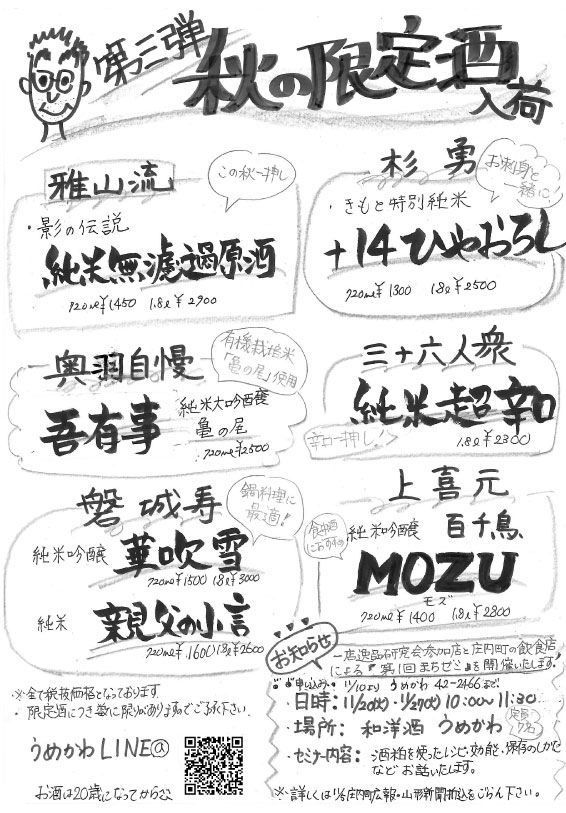 第三弾
秋の限定酒
入荷
雅山流
この秋一押し
・影の伝説
純米無濾過原酒
720ml¥1450 1.8l¥2900
杉勇
お刺身と
一緒に!
・きもと特別純米
+14ひやおろし
720ml¥1300 1.8l¥2500
奥羽自慢
有機栽培米
「亀の尾」使用
吾有事
純米大吟醸
亀の尾
720ml¥2500
三十六人衆
純米超辛口
辛口一押し!
1.8l¥2300
磐城寿
鍋料理に
最適!
純米吟醸 華吹雪
720ml¥1500 1.8l¥3000
純米 親父の小言
720ml¥1600 1.8l¥2600
上喜元
純米吟醸 百千鳥
食中酒
におすすめ
MOZU
モズ
720ml¥1400 1.8l¥2800
お知らせ
一店逸品研究会参加店と庄内町の飲食店
による『第1回まちゼミ』を開催いたします!
お申込み… 11/10より うめかわ 42-2466まで
・日時: 11/20(水)・11/27(水) 10:00〜11:30
・場所: 和洋酒 うめかわ
定員
7名
・セミナー内容: 酒粕を使ったレシピ、効能、保存のしかた
などお話いたします。
※詳しくは11/5庄内町広報・山形新聞折込をごらん下さい。
※全て税抜価格となっております
・限定酒につき数に限りがありますのでご了承下さい。
うめかわLINE@
お酒は20歳になってから